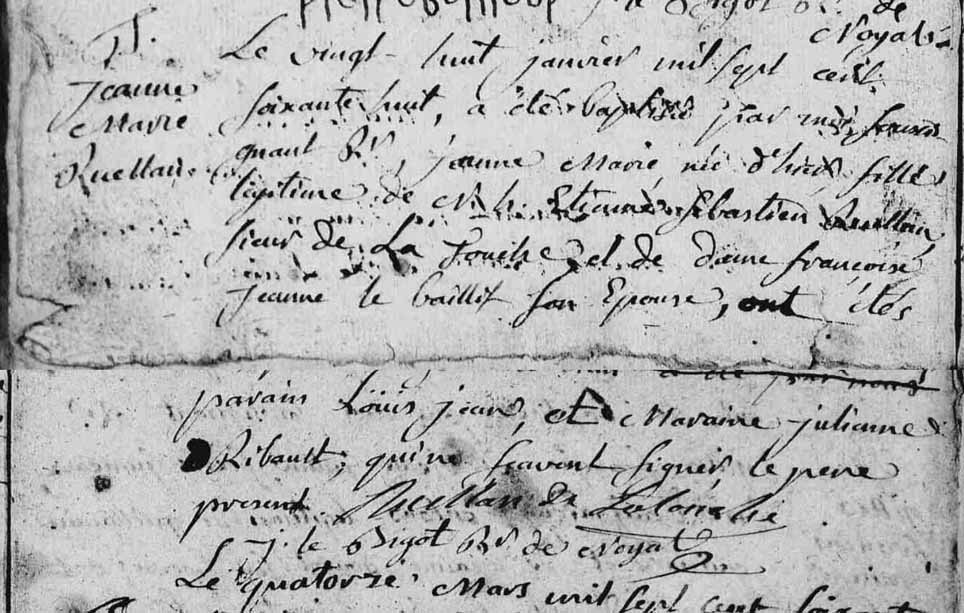 j: le Bigot Rr. de
Noyal.
T.
Jeanne
Marie
Ruellan.
Le vingt-huit janvier mil sept cent
soixante huit, a été baptisée par moy
Rr, jeanne Marie, née d'hier, fille
legitime de N. h. Etienne Sébastien Ruellan
sieur de La Touche et de dame françoise
jeanne le baillif son Epouse, ont étés
a été par nous
parain Louis jean, et Maraine julianne
Ribault; qui ne scavent signer, le pere
present. Ruellan De Latouche
J. le Bigot Rr de Noyal
Le quatorze Mars mil sept cent soixante